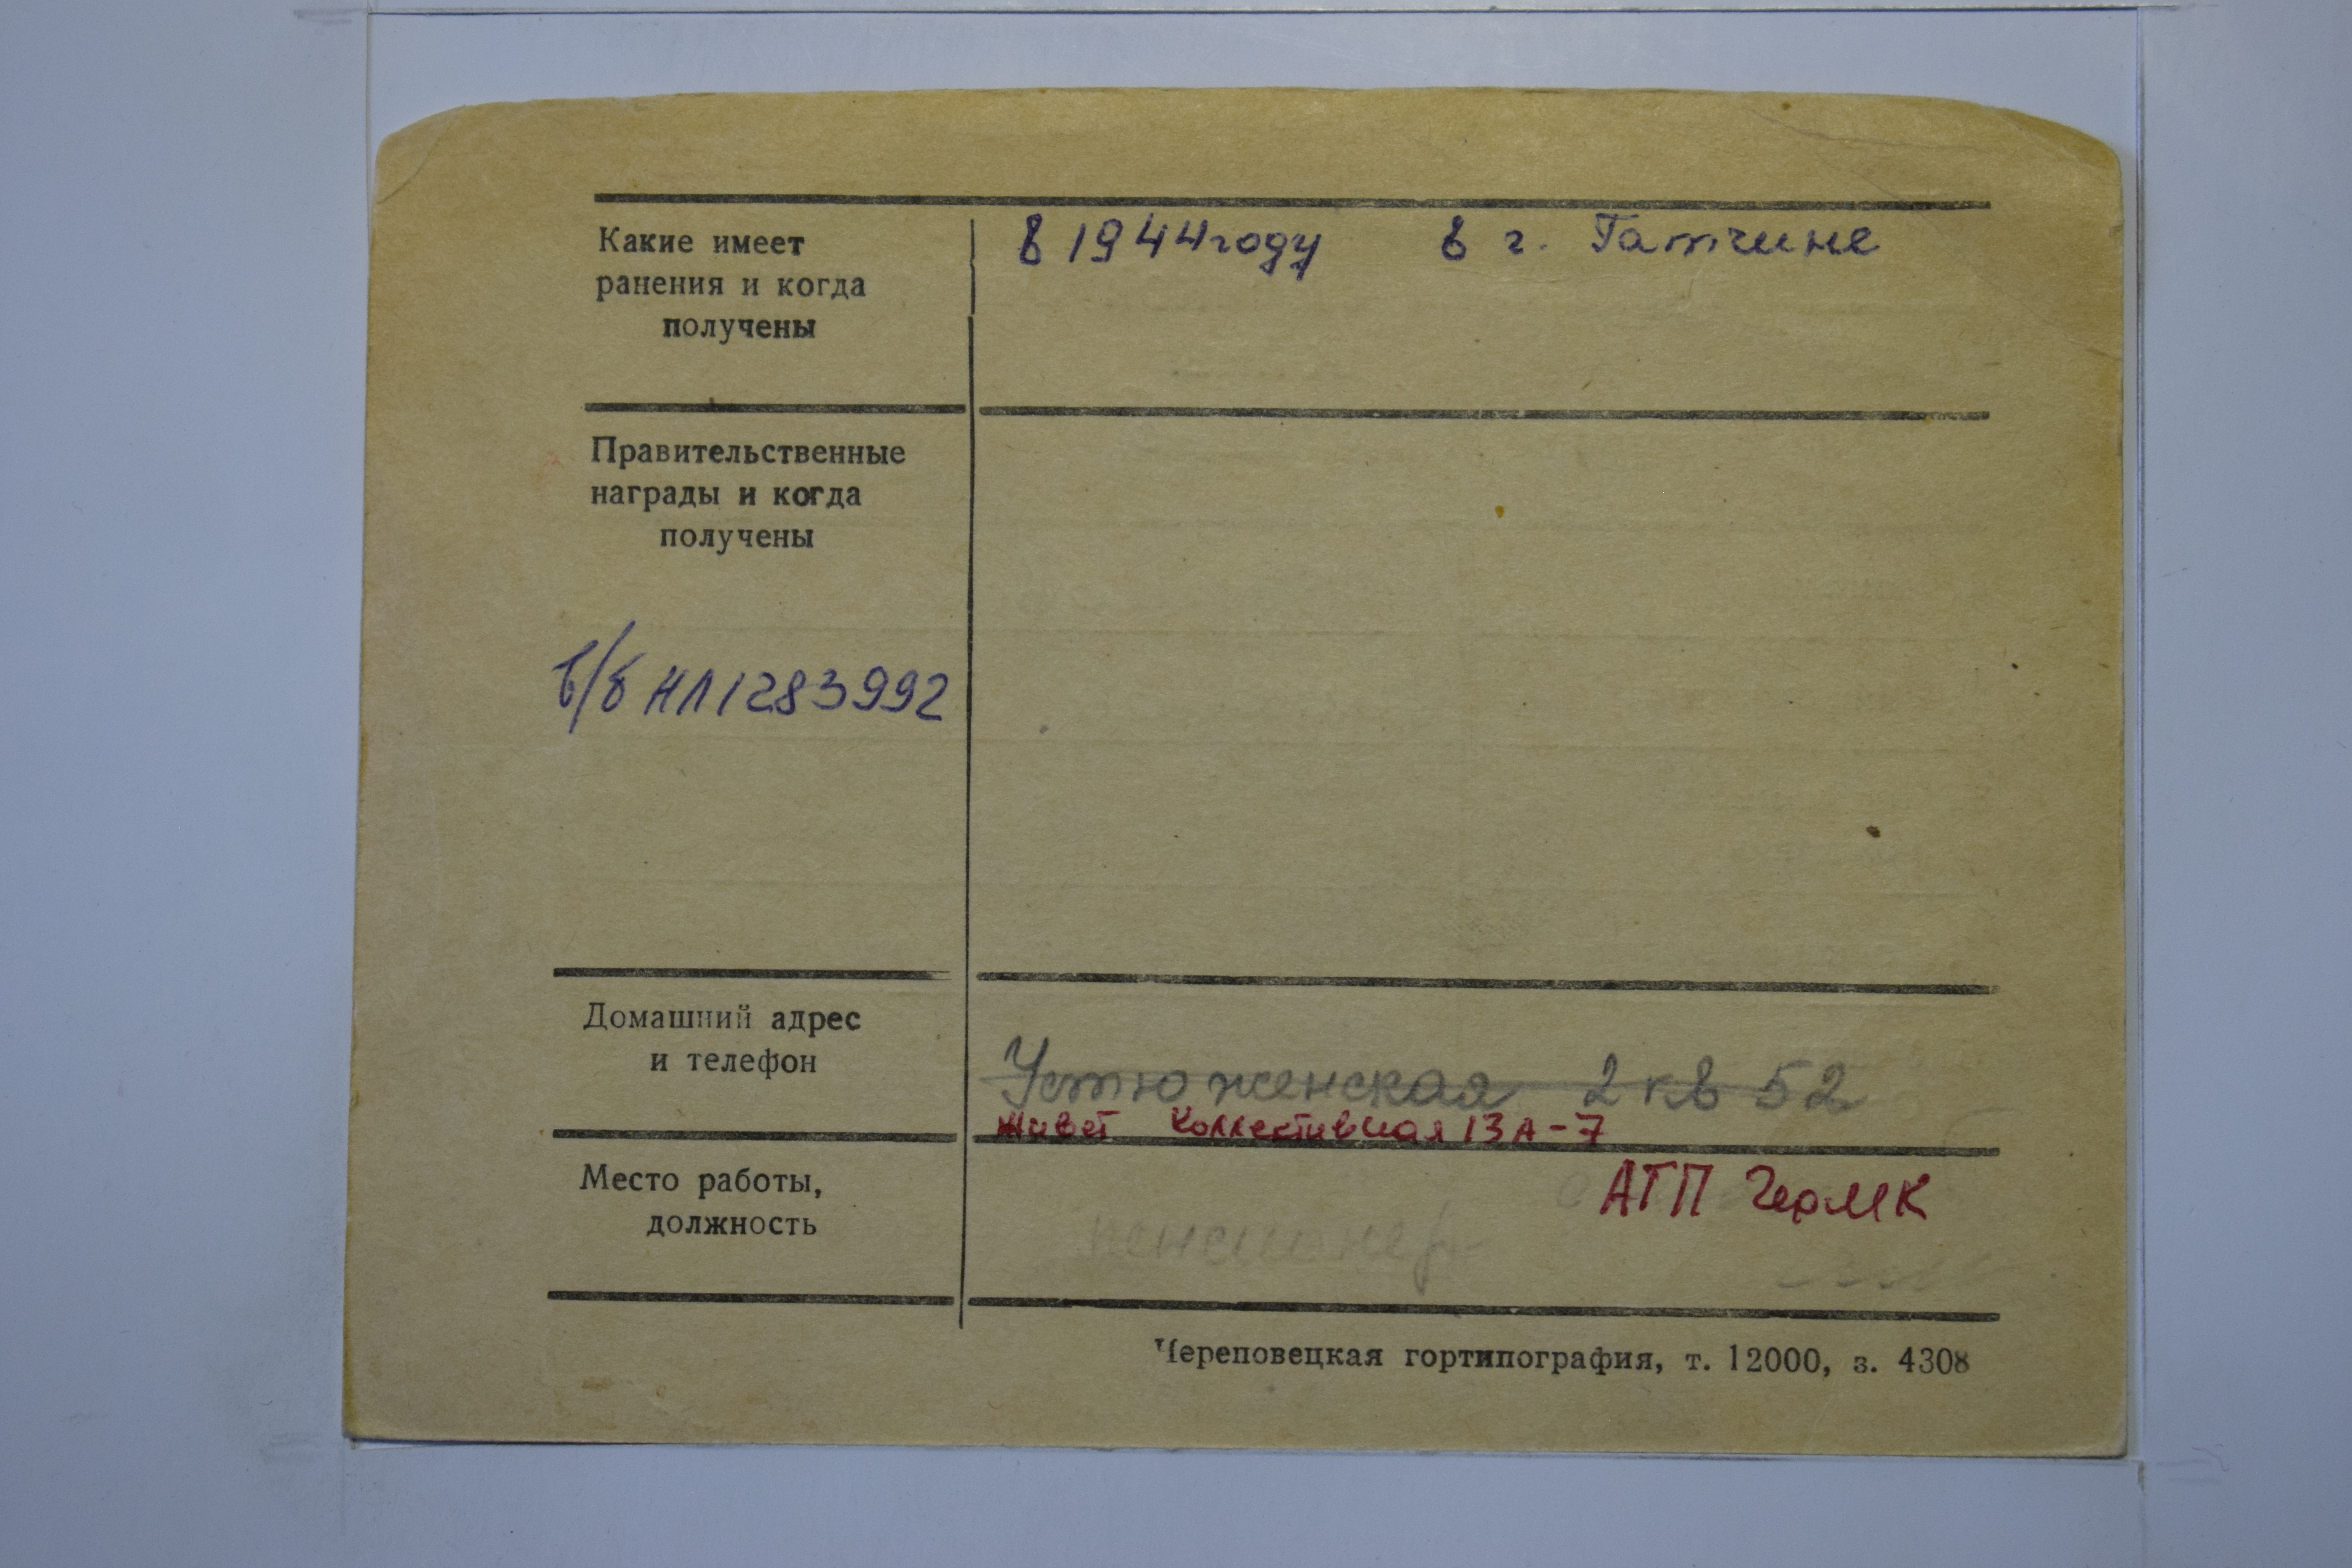 Какие имеет
ранения и когда
получены
в 1944 году в г. Гатчине
Правительственные
награды и когда
получены
в/б НЛ 1283992
Домашний адрес
и телефон
Устюженская 2 кв 52
живет Коллективная 13А-7
Место работы,
должность
АТП ЧерМК
пенсионер
Череповецкая гортипография, т. 12000, з. 4308